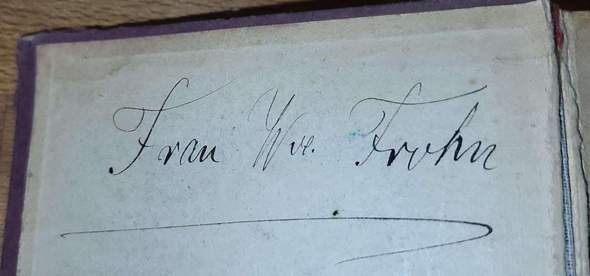 Frau Wve. Frohn